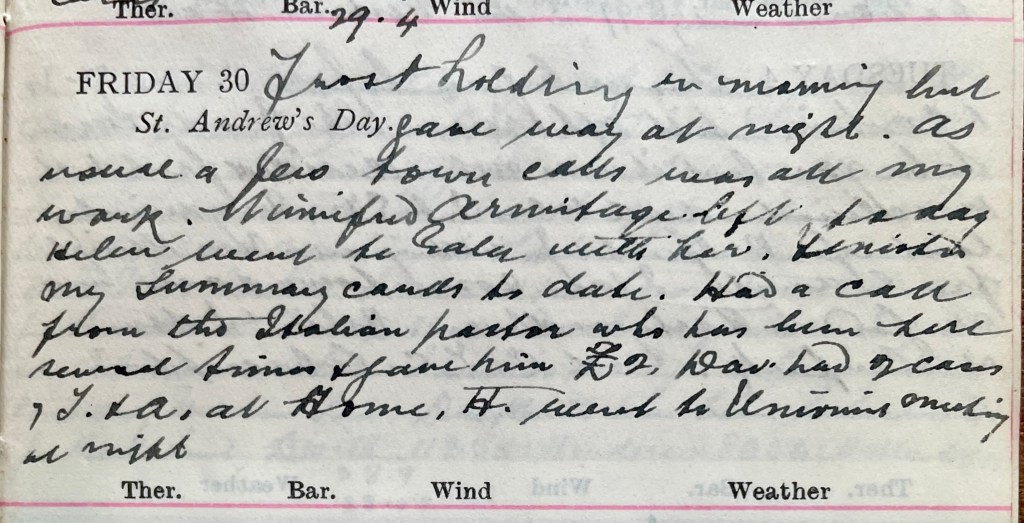 Ther. Bar. Wind Weather
29.4
FRIDAY 30 Frost holding in morning but
St. Andrew's Day. gave way at night. As
usual a few town calls was all my
work. Winnifred Armitage left to day
Helen went to Gala with her. Finished
my Summary cards to date. Had a call
from the Italian pastor who has been here
several times & gave him £2. Dav. had 7 cases
of T. & A. at Home. H. went to Unionist meeting
at night
Ther. Bar. Wind Weather